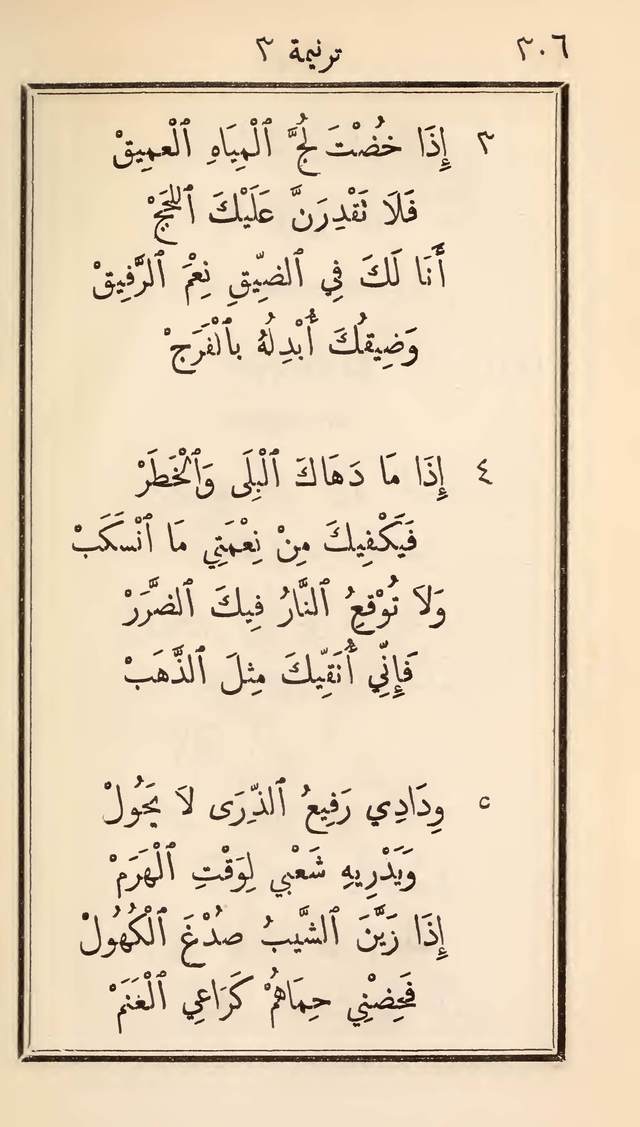 ٣٠٦ ترنيمة ٣
٣ إِذَا خُضْتَ لُجَّ ٱلْمِيَاهِ ٱلْعمِيقْ
فَلَا تَقْدِرَنَّ عَلَيْكَ ٱللُّجَجْ
أَنَا لَكَ فِي ٱلضِّيقِ نِعْمَ ٱلرَّفِيقْ
وَضِيقُكَ أُبْدِلُهُ بِٱلْفَرَجْ
٤ إِذَا مَا دَهَاكَ ٱلْبِلَى وَٱلْخَطَرْ
فَيَكْفِيكَ مِنْ نِعْمَتِي مَا ٱنْسَكَبْ
وَلَا تُوْقِعُ ٱلنَّارُ فِيكَ ٱلضَّرَرْ
فَإِنِّي أُنَقِّيكَ مِثلَ ٱلذَّهَبْ
٥ وِدَادِي رَفِيعُ ٱلذِّرَى لَا يَحُولْ
وَيَدْرِيهِ شَعْبِي لِوَقْتِ ٱلْهَرَمْ
إِذَا زَيَّنَ ٱلشَّيبُ صدْغَ ٱلْكُهُولْ
فَحِضْنِي حِمَاهُمْ كَرَاعِي ٱلْغَنَمْ